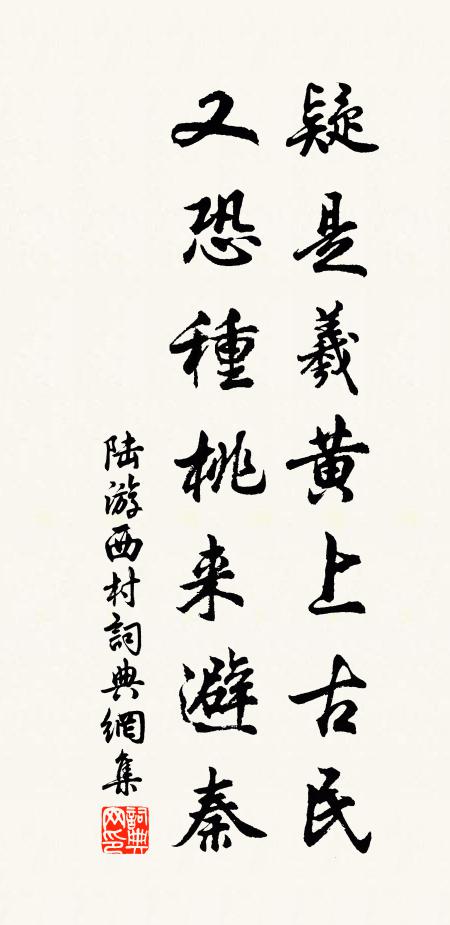 疑是羲黄上古民
又恐種桃来避秦
陆游西村詞典網集
詞典网印